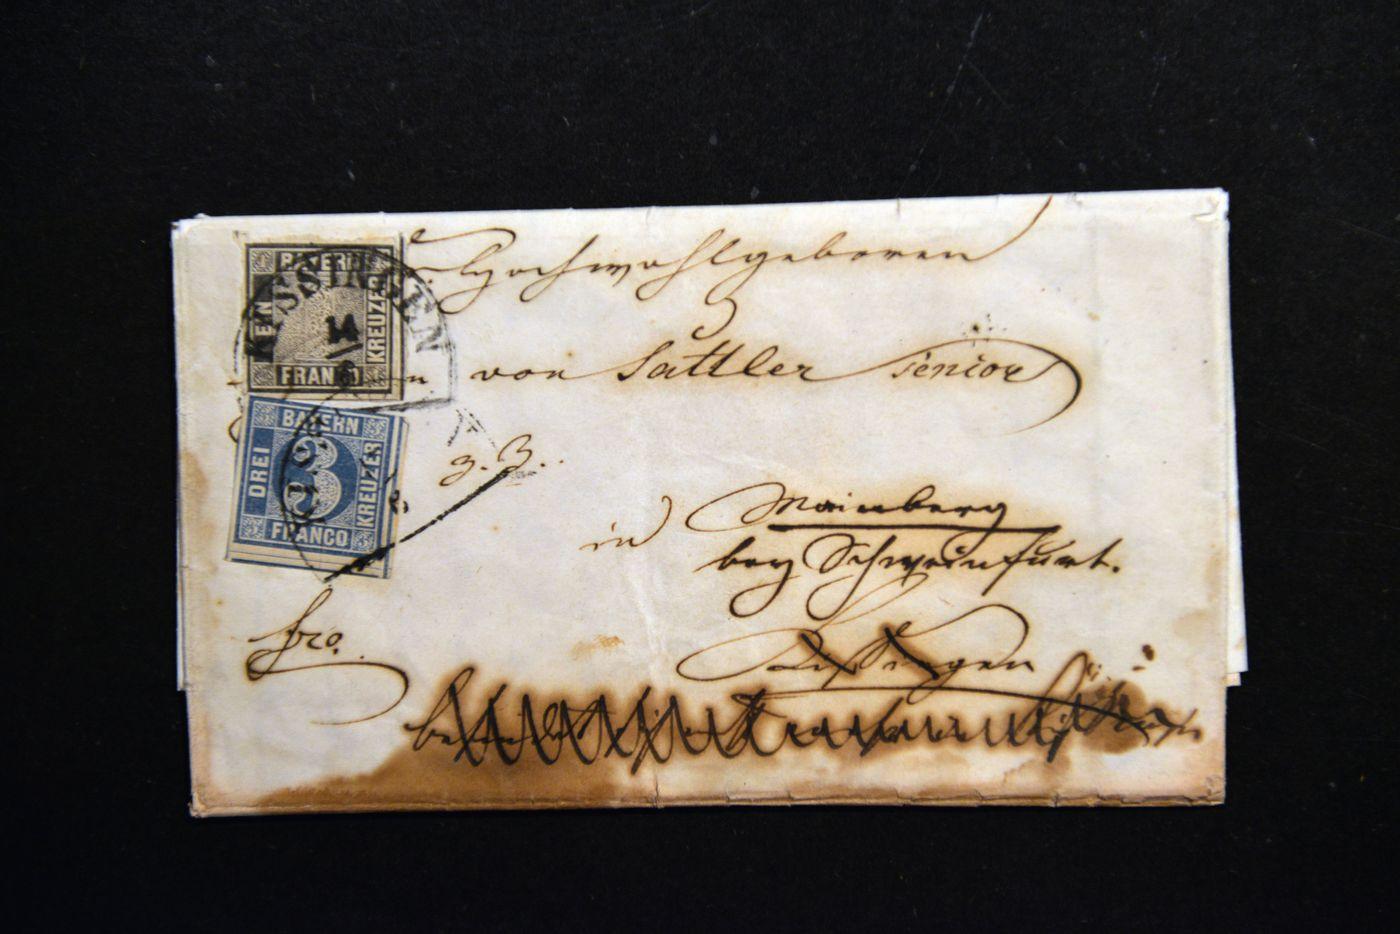 BAYERN
EIN
KREUZER
FRANCO
KISSINGEN
14
BAYERN
DREI
3
KREUZER
FRANCO
Hochwohlgeboren
von Sattler senior
z. Z.
in Mainberg
bey Schweinfurt.
fro.
Kissingen